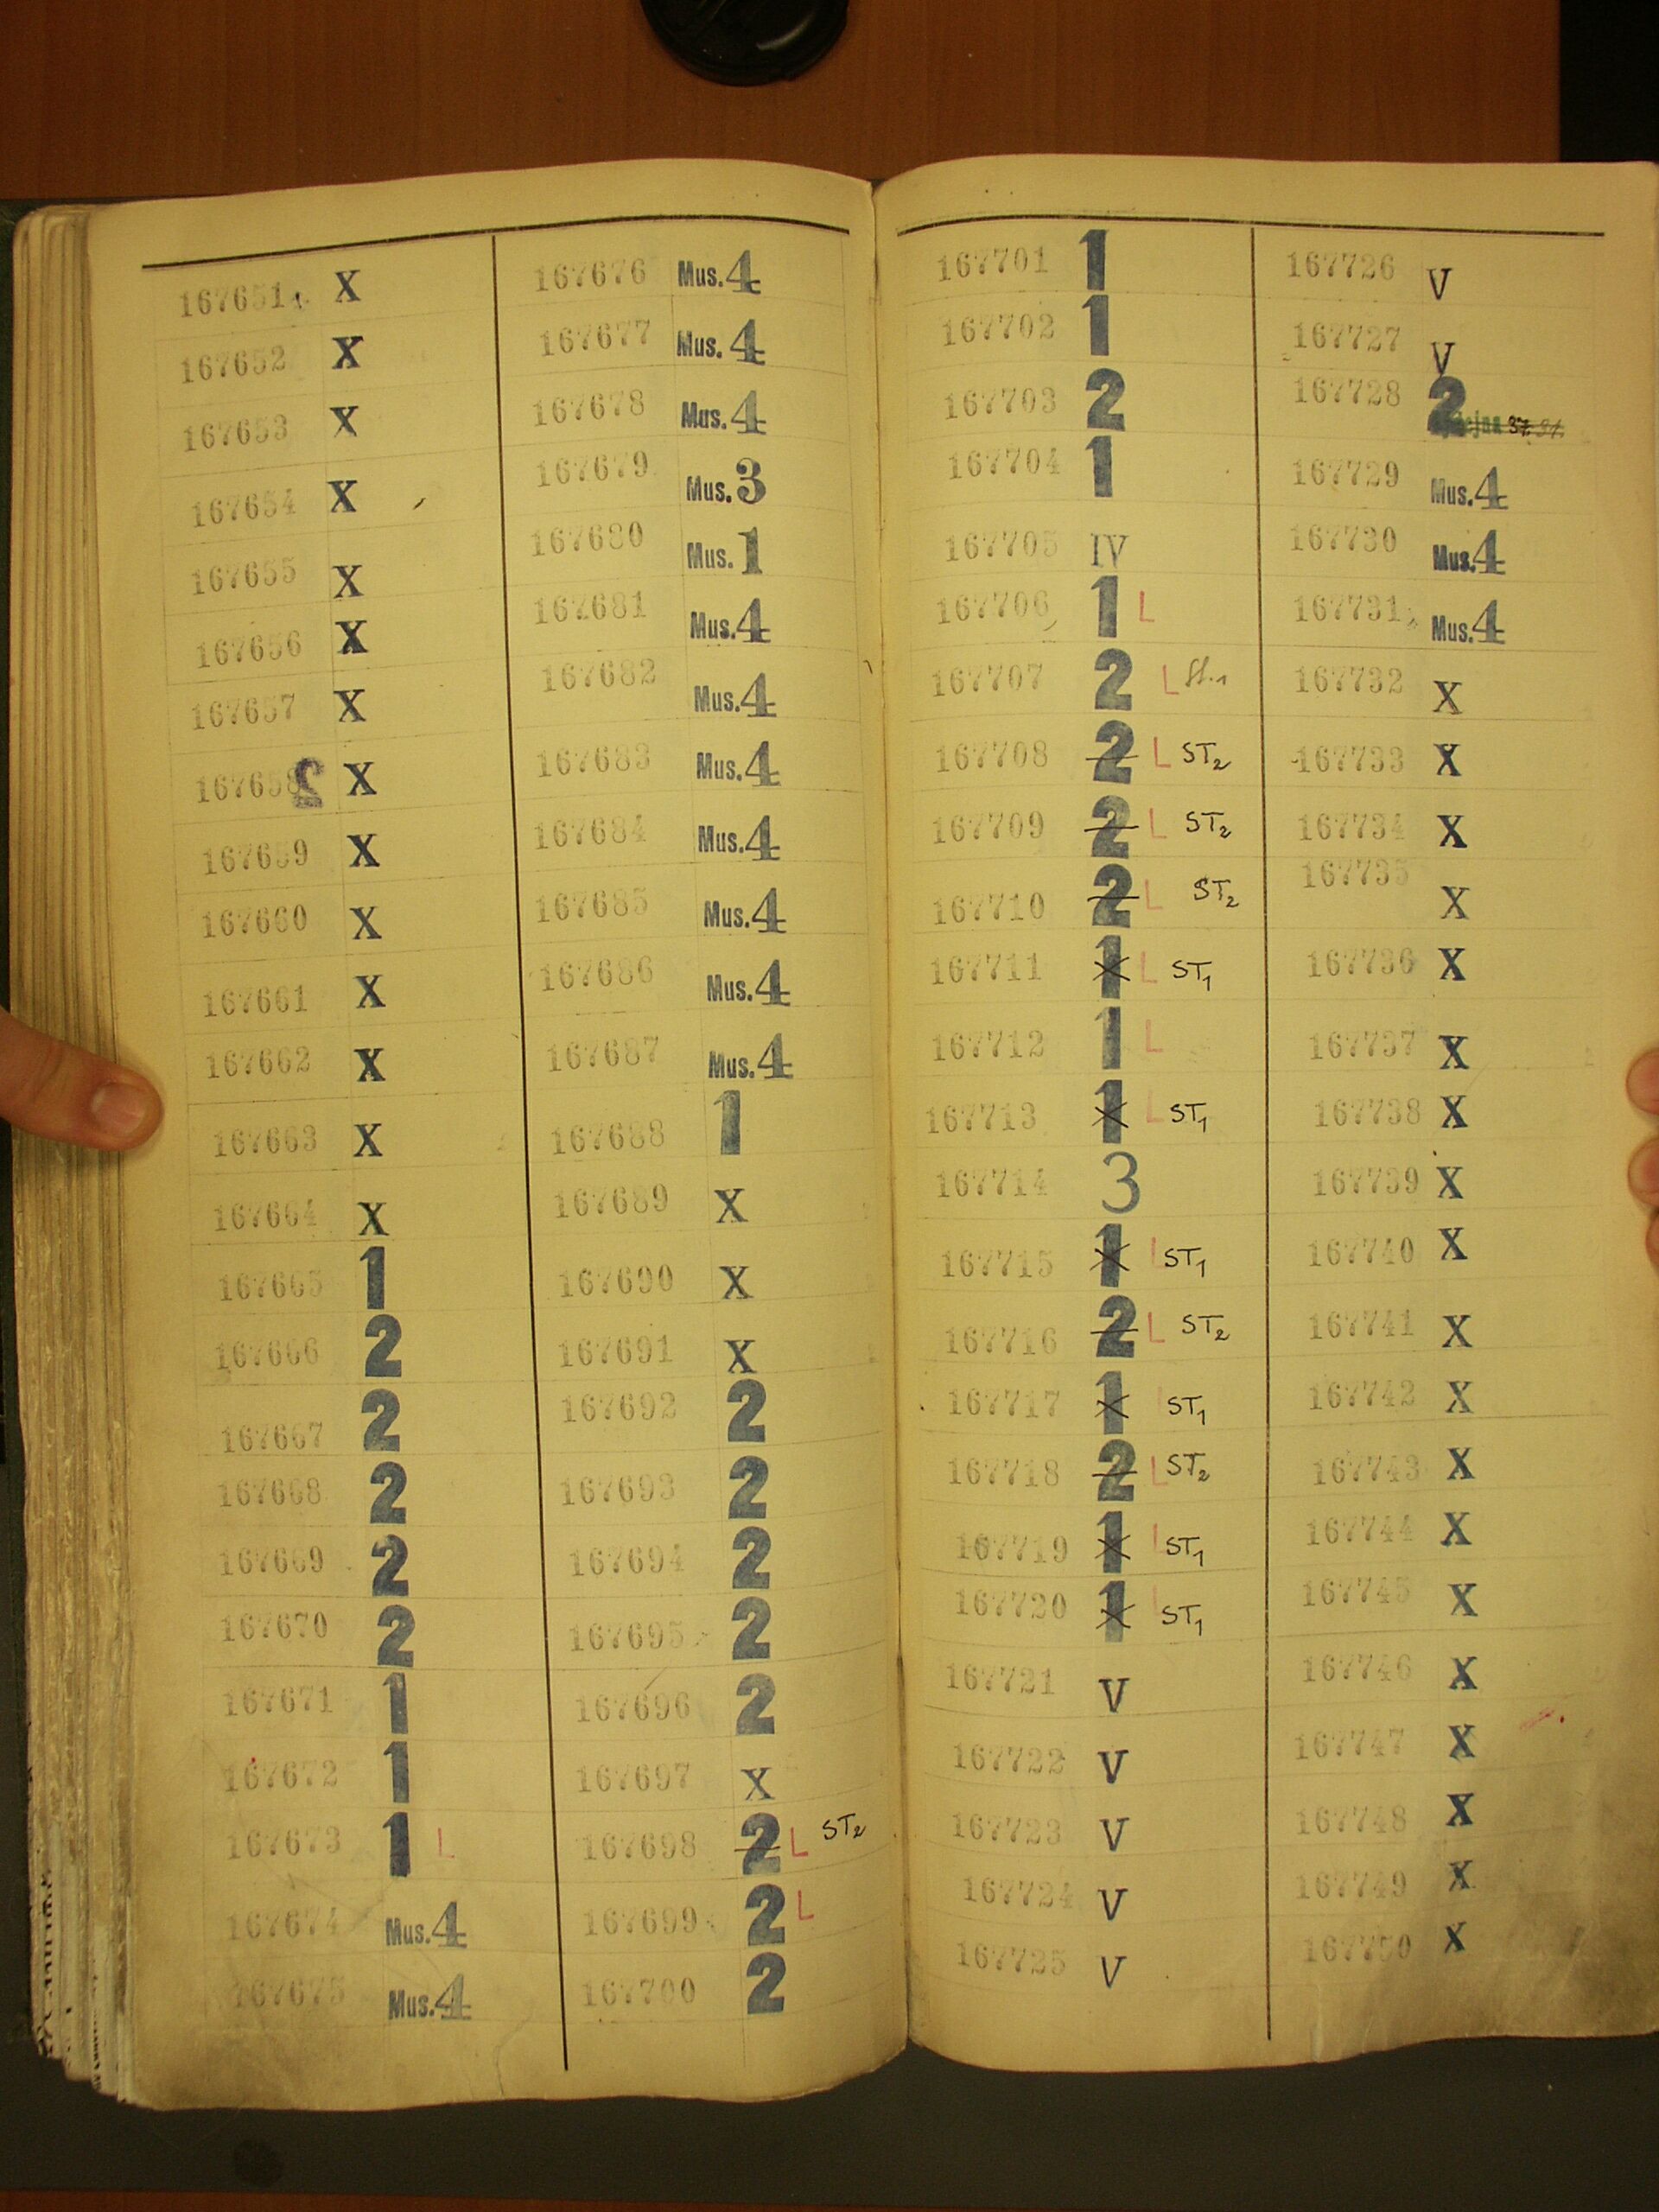 167651 X
167652 X
167653 X
167654 X
167655 X
167656 X
167657 X
167658 2 X
167659 X
167660 X
167661 X
167662 X
167663 X
167664 X
167665 1
167666 2
167667 2
167668 2
167669 2
167670 2
167671 1
167672 1
167673 1 L
167674 Mus. 4
167675 Mus. 4
167676 Mus. 4
167677 Mus. 4
167678 Mus. 4
167679 Mus. 3
167680 Mus. 1
167681 Mus. 4
167682 Mus. 4
167683 Mus. 4
167684 Mus. 4
167685 Mus. 4
167686 Mus. 4
167687 Mus. 4
167688 1
167689 X
167690 X
167691 X
167692 2
167693 2
167694 2
167695 2
167696 2
167697 X
167698 2 L ST2
167699 2 L
167700 2
167701 1
167702 1
167703 2
167704 1
167705 IV
167706 1 L
167707 2 L St.1
167708 2 L ST2
167709 2 L ST2
167710 2 L ST2
167711 1 L ST1
167712 1 L
167713 1 L ST1
167714 3
167715 1 L ST1
167716 2 L ST2
167717 1 ST1
167718 2 L ST2
167719 1 L ST1
167720 1 L ST1
167721 V
167722 V
167723 V
167724 V
167725 V
167726 V
167727 V
167728 2
167729 Mus. 4
167730 Mus. 4
167731 Mus. 4
167732 X
167733 X
167734 X
167735 X
167736 X
167737 X
167738 X
167739 X
167740 X
167741 X
167742 X
167743 X
167744 X
167745 X
167746 X
167747 X
167748 X
167749 X
167750 X